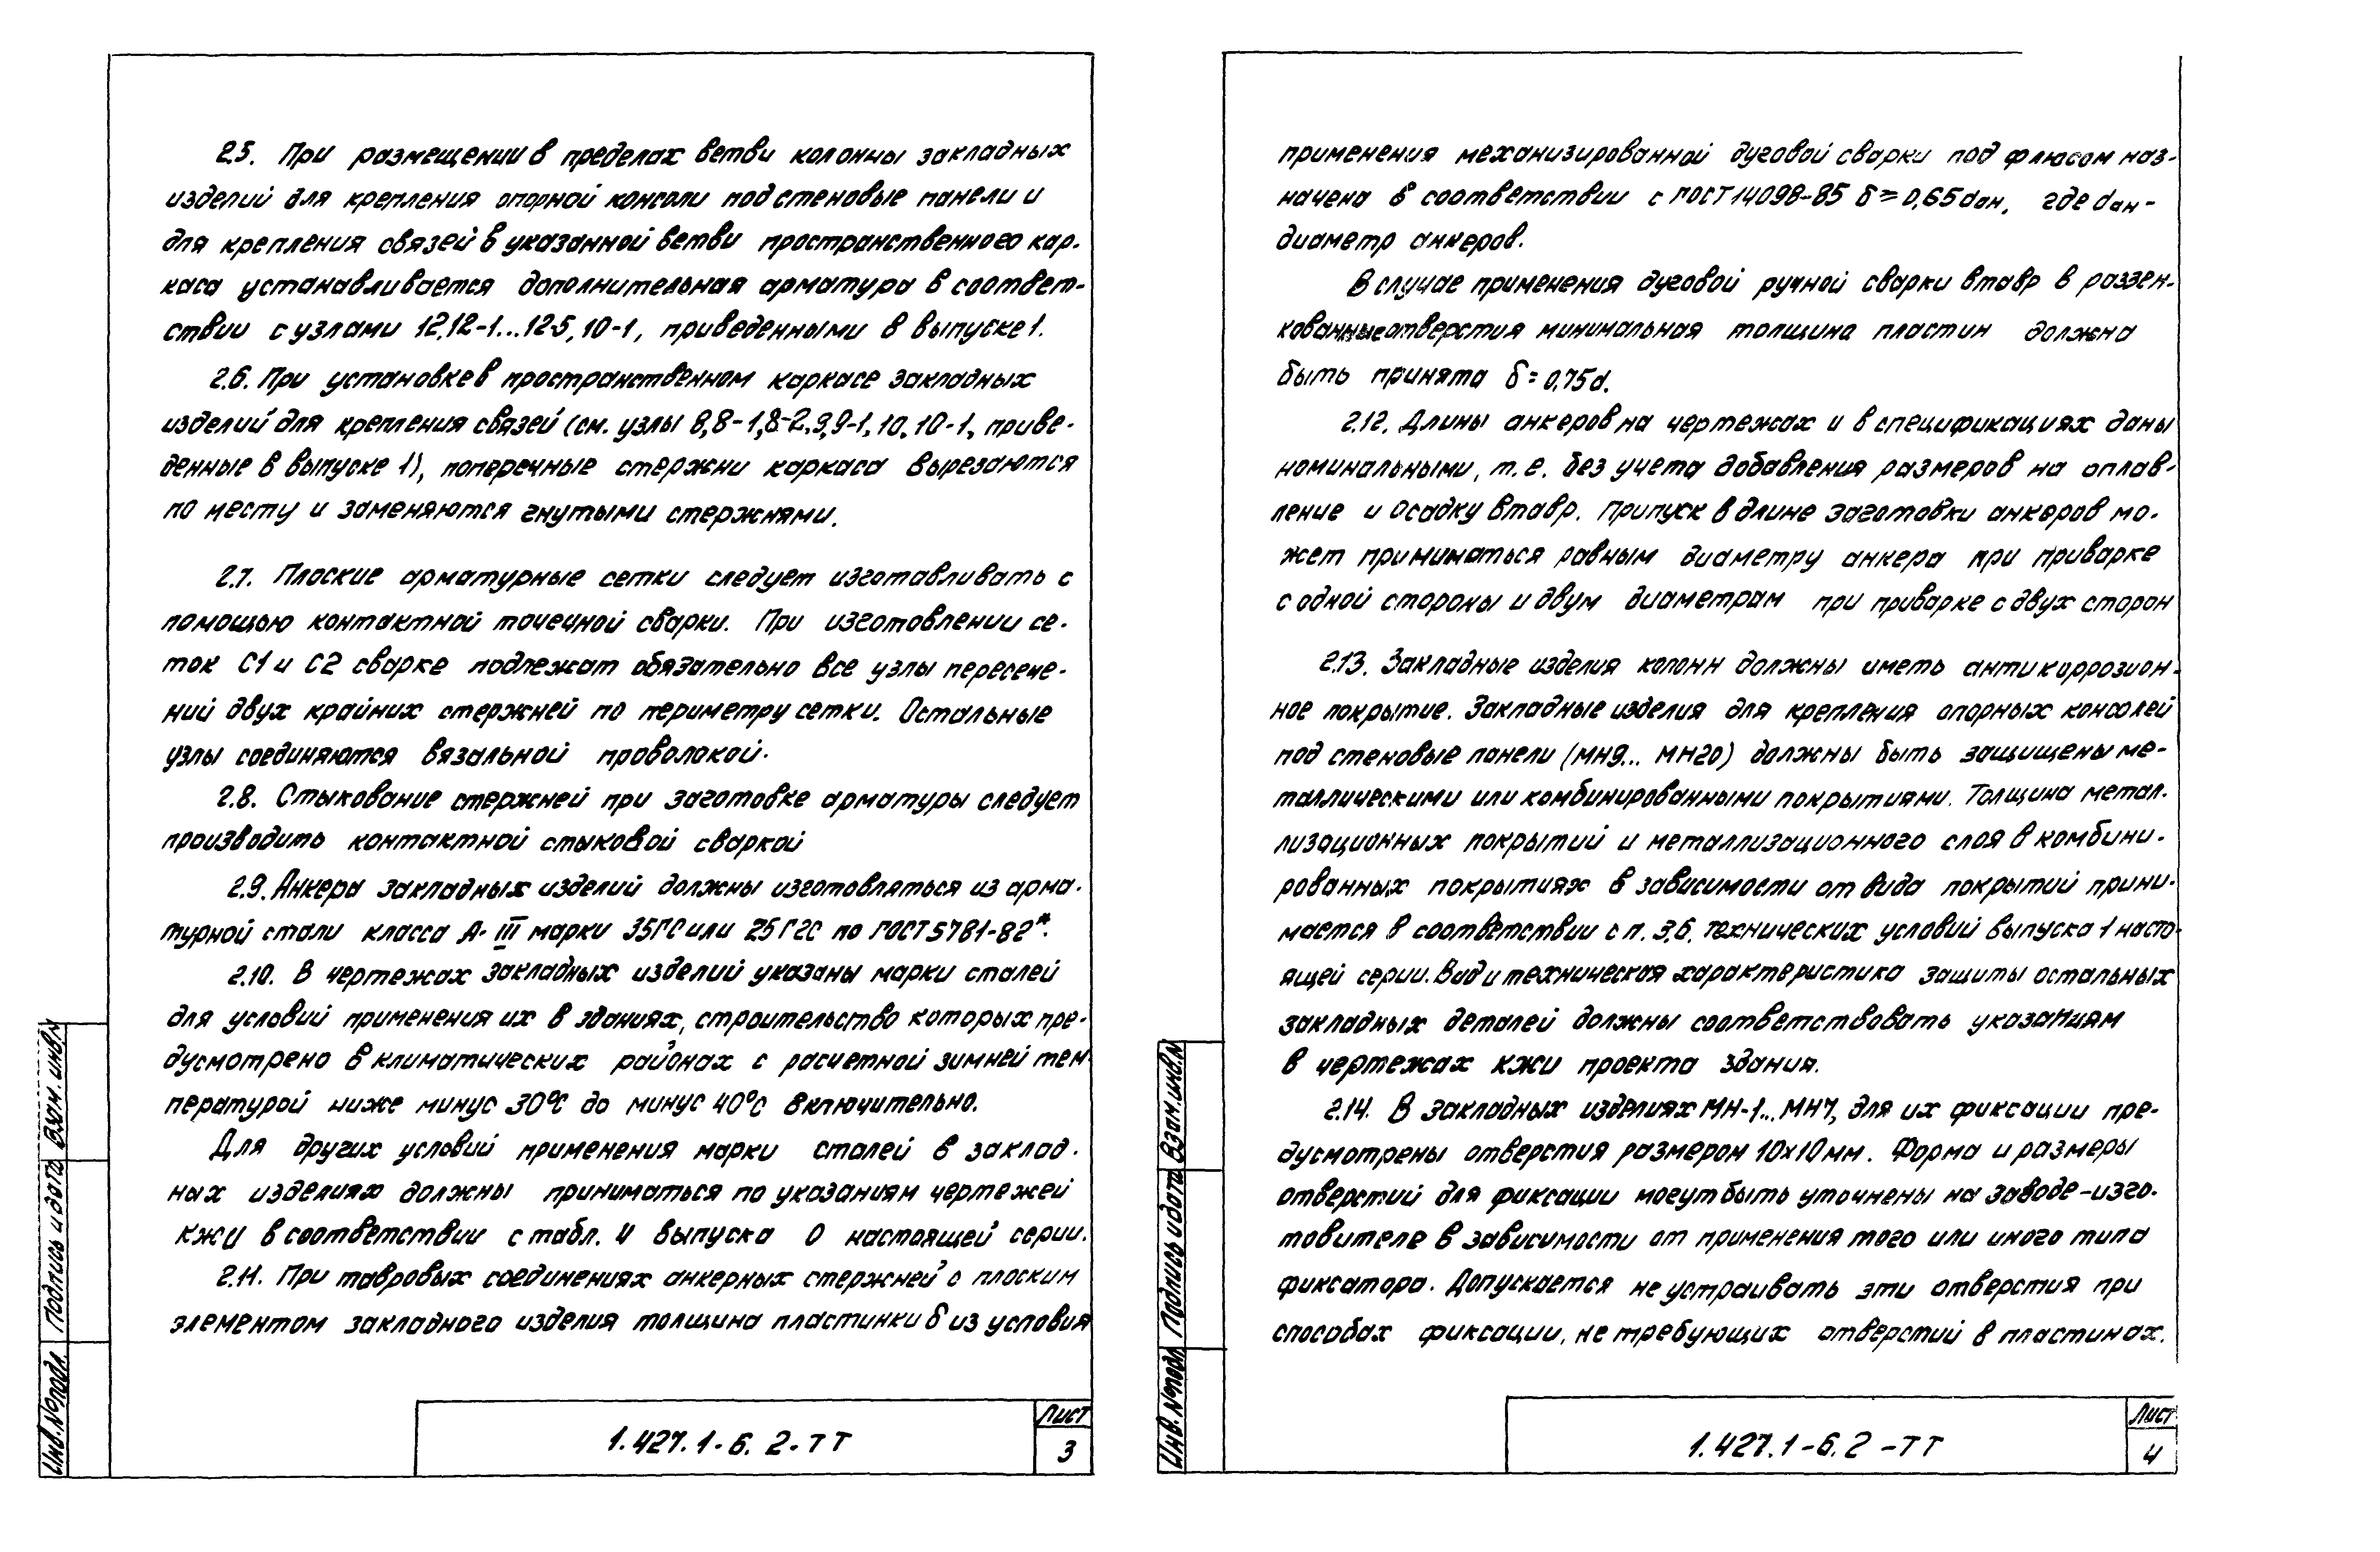 2.5. При размещении в пределах ветви колонны закладных
изделий для крепления опорной консоли под стеновые панели и
для крепления связей в указанной ветви пространственного кар-
каса устанавливается дополнительная арматура в соответ-
ствии с узлами 12,12-1...12-5, 10-1, приведенными в выпуске 1.
2.6. При установке в пространственном каркасе закладных
изделий для крепления связей (см. узлы 8,8-1,8-2,9,9-1,10,10-1, приве-
денные в выпуске 1), поперечные стержни каркаса вырезаются
по месту и заменяются гнутыми стержнями.
2.7. Плоские арматурные сетки следует изготавливать с
помощью контактной точечной сварки. При изготовлении се-
ток С1 и С2 сварке подлежат обязательно все узлы пересече-
ний двух крайних стержней по периметру сетки. Остальные
узлы соединяются вязальной проволокой.
2.8. Стыкование стержней при заготовке арматуры следует
производить контактной стыковой сваркой
2.9. Анкера закладных изделий должны изготовляться из арма-
турной стали класса А-III марки 35ГС или 25Г2С по ГОСТ 5781-82*.
2.10. В чертежах закладных изделий указаны марки сталей
для условий применения их в зданиях, строительство которых пре-
дусмотрено в климатических районах с расчетной зимней тем-
пературой ниже минус 30°С до минус 40°С включительно.
Для других условий применения марки сталей в заклад-
ных изделиях должны приниматься по указаниям чертежей
КЖИ в соответствии с табл. 4 выпуска 0 настоящей серии.
2.11. При тавровых соединениях анкерных стержней с плоским
элементом закладного изделия толщина пластинки δ из условия
1.427.1-6.2-ТТ
Лист
3
Инв.№подл.
Подпись и дата
Взам.инв.№
применения механизированной дуговой сварки под флюсом наз-
начена в соответствии с ГОСТ 14098-85 δ≥0,65dан, где dан-
диаметр анкеров.
В случае применения дуговой ручной сварки втавр в раззен-
кованные отверстия минимальная толщина пластин должна
быть принята δ=0,75d.
2.12. Длины анкеров на чертежах и в спецификациях даны
номинальными, т.е. без учета добавления размеров на оплав-
ление и осадку втавр. Припуск в длине заготовки анкеров мо-
жет приниматься равным диаметру анкера при приварке
с одной стороны и двум диаметрам при приварке с двух сторон
2.13. Закладные изделия колонн должны иметь антикоррозион-
ное покрытие. Закладные изделия для крепления опорных консолей
под стеновые панели (МН9... МН20) должны быть защищены ме-
таллическими или комбинированными покрытиями. Толщина метал-
лизационных покрытий и металлизационного слоя в комбини-
рованных покрытиях в зависимости от вида покрытий прини-
мается в соответствии с п. 3.6. технических условий выпуска 1 насто-
ящей серии. Вид и техническая характеристика защиты остальных
закладных деталей должны соответствовать указаниям
в чертежах КЖИ проекта здания.
2.14. В закладных изделиях МН-1...МН7, для их фиксации пре-
дусмотрены отверстия размером 10х10 мм. Форма и размеры
отверстий для фиксации могут быть уточнены на заводе-изго-
товителе в зависимости от применения того или иного типа
фиксатора. Допускается не устраивать эти отверстия при
способах фиксации, не требующих отверстий в пластинах.
1.427.1-6.2-ТТ
Лист
4
Инв.№подл
Подпись и дата
Взам.инв.№